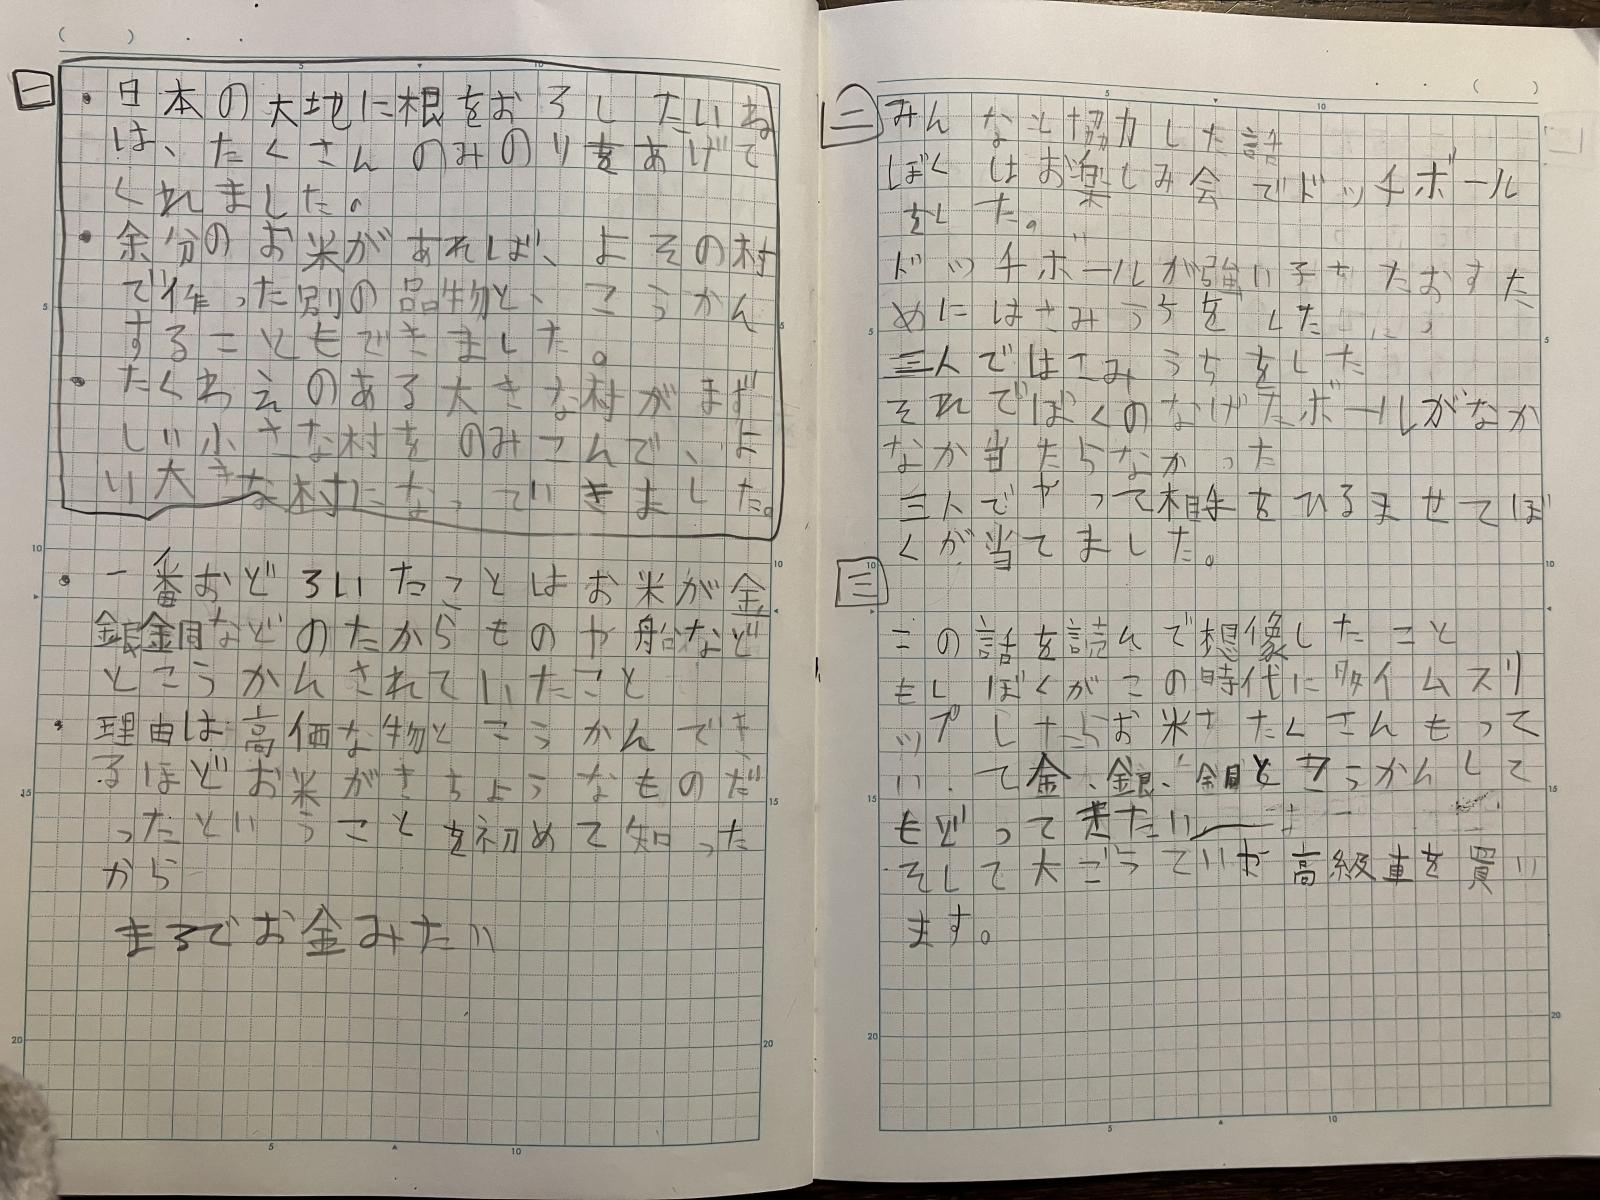 一
・日本の大地に根をおろしたいね
は、たくさんのみのりをあげて
くれました。
・余分のお米があれば、よその村
で作った別の品物と、こうかん
することもできました。
・たくわえのある大きな村がまず
しい小さな村をのみこんで、よ
り大きな村になっていきました。
・一番おどろいたことはお米が金
銀銅などのたからものや船など
とこうかんされていたこと
・理由は高価な物とこうかんでき
るほどお米がきちょうなものだ
ったということを初めて知った
から
まるでお金みたい
二
みんなと協力した話
ぼくはお楽しみ会でドッチボール
をした。
ドッチボールが強い子をたおすた
めにはさみうちをした
三人ではさみうちをした
それでぼくのなげたボールがなか
なか当たらなかった
三人でやって相手をひるませてぼ
くが当てました。
三
この話を読んで想像したこと
もしぼくがこの時代にタイムスリ
ップしたらお米をたくさんもって
いって金、銀、銅とこうかんして
もどってきたい
そして大ごうていや高級車を買い
ます。
5
10
15
20